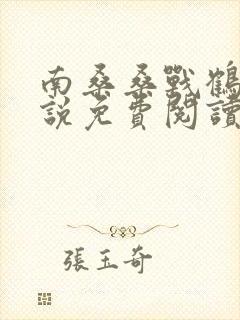 南桑桑戰鶴
說免費閱讀
張玉奇